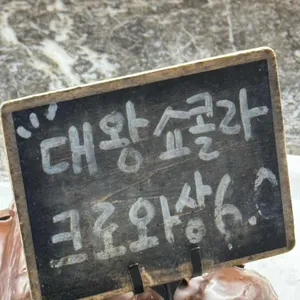 대왕 쇼콜라
크로와상 6.^